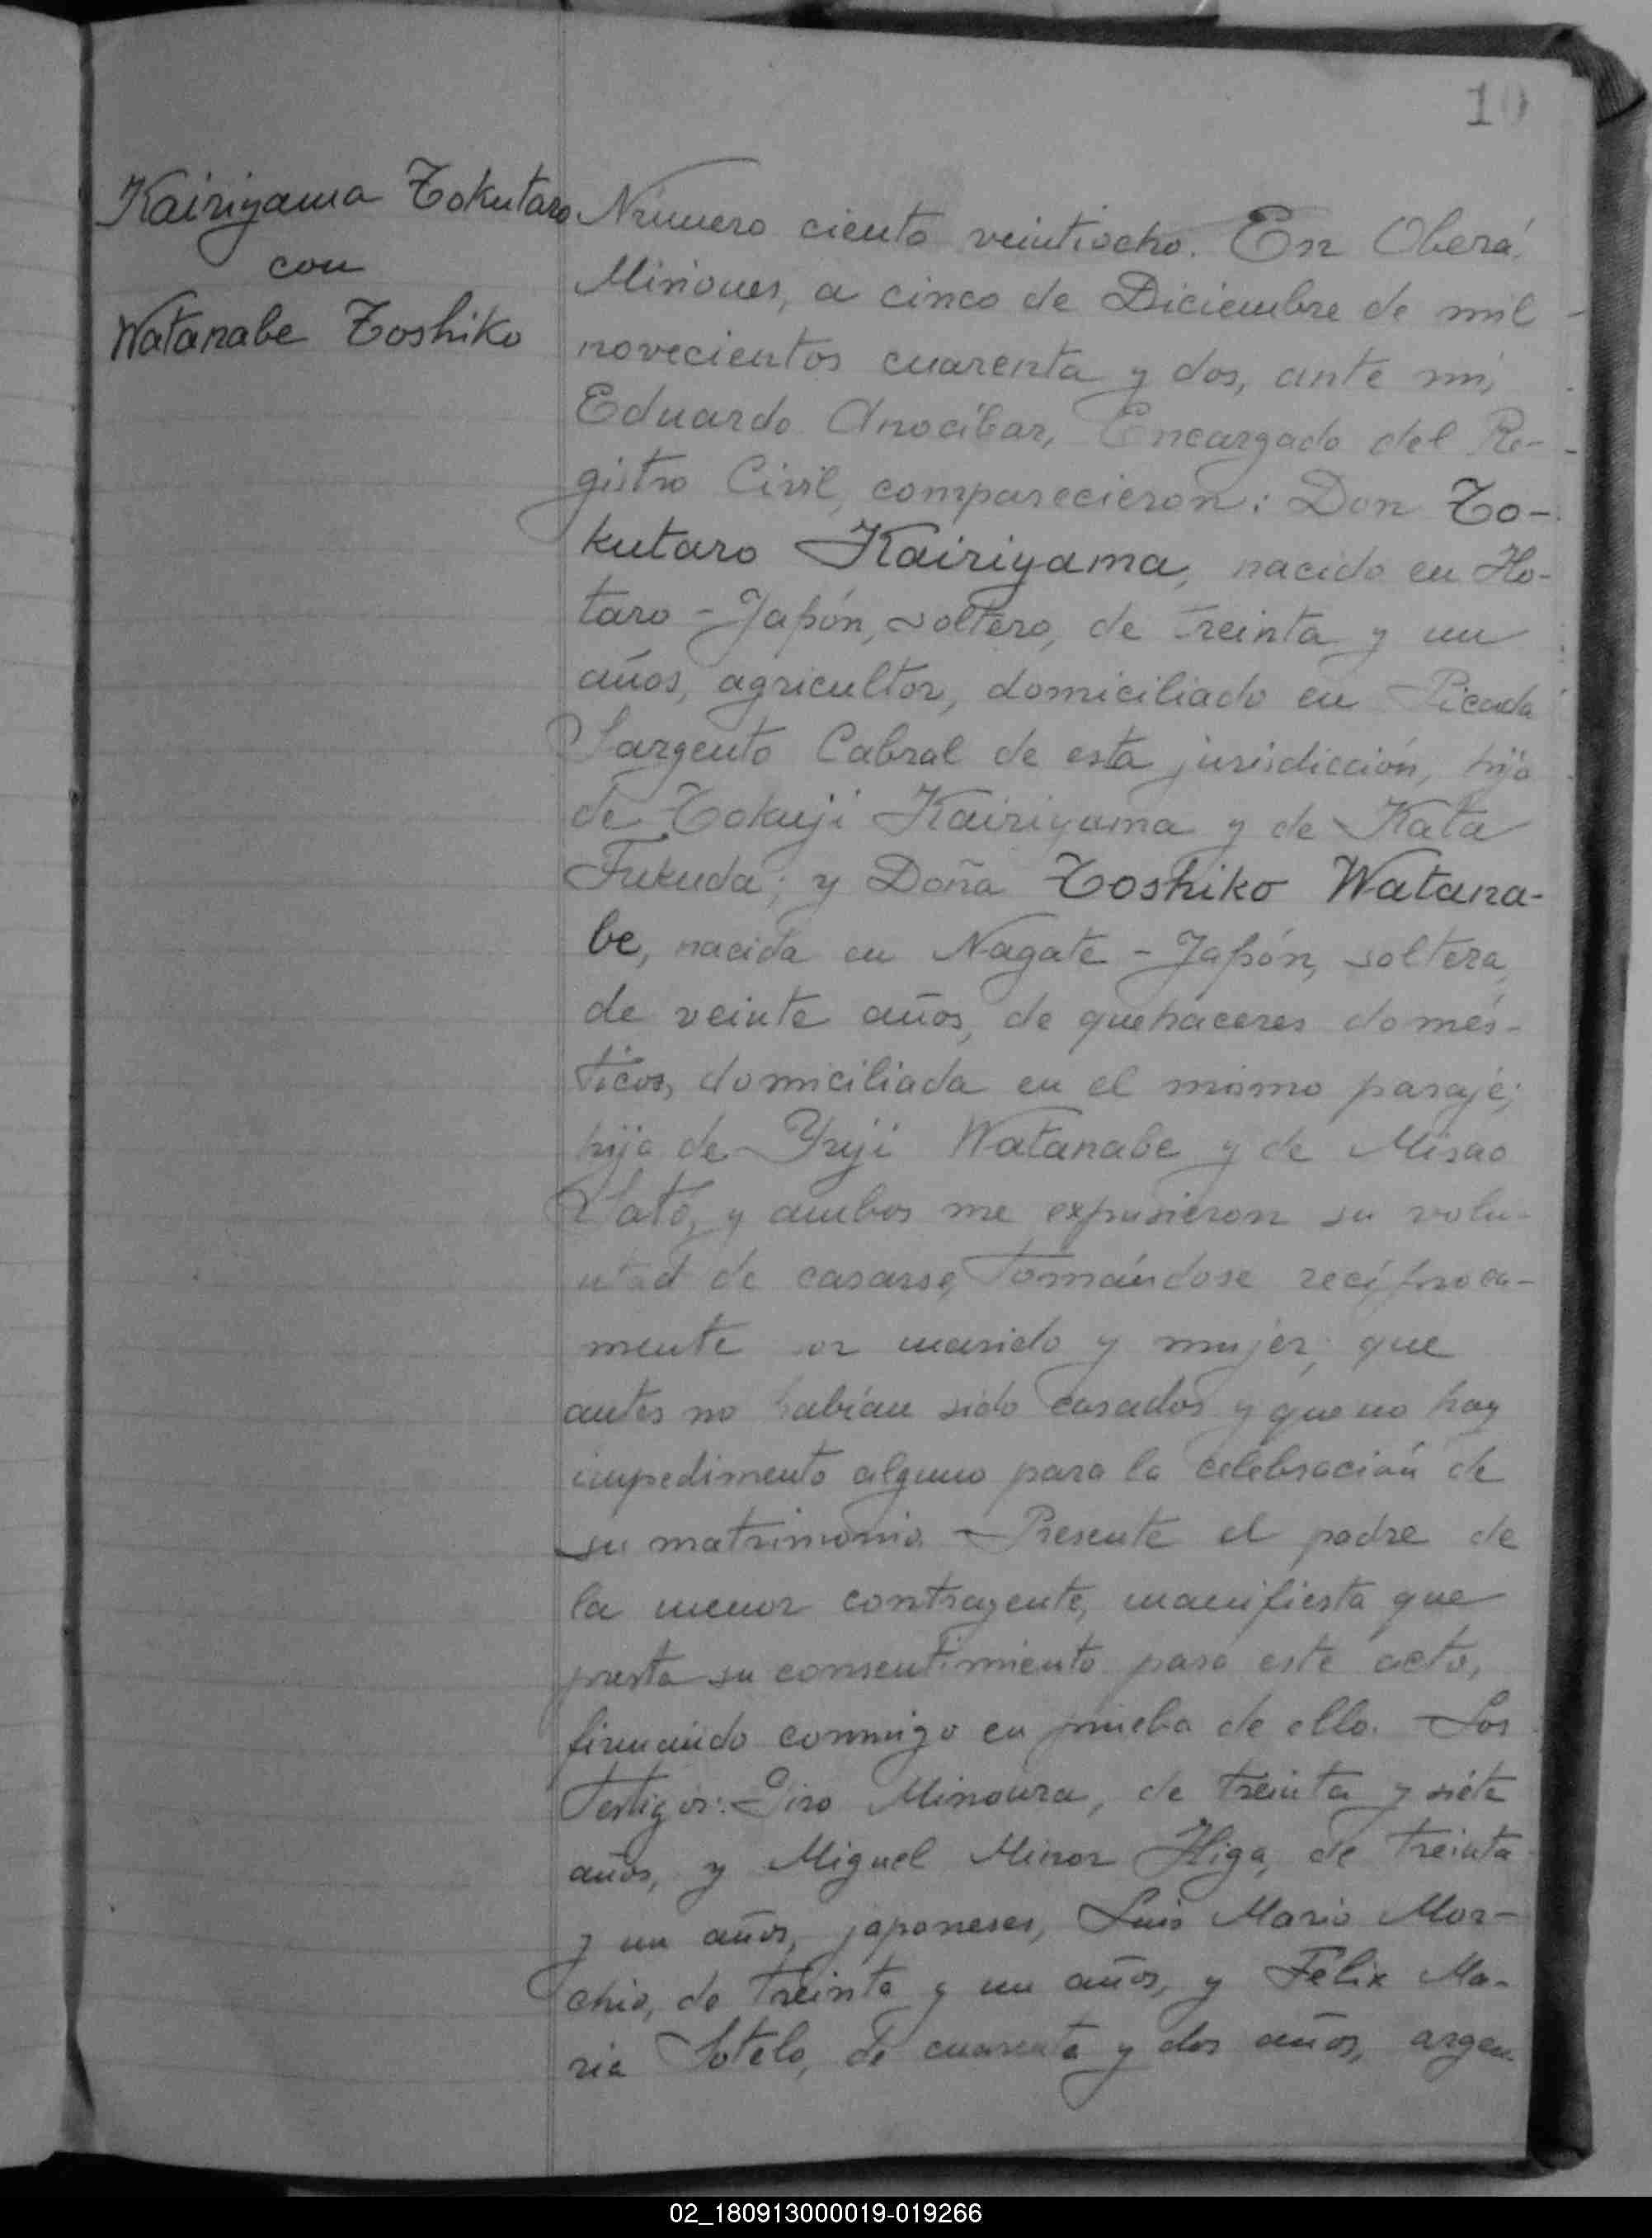 10
Kairiyama Tokutaro
con
Watanabe Toshiko
Número ciento veintiocho. En Oberá,
Misiones, a cinco de Diciembre de mil
novecientos cuarenta y dos, ante mí,
Eduardo Arocibar, Encargado del Re-
gistro Civil, comparecieron: Don To-
kutaro Kairiyama, nacido en Ho-
taro - Japón, soltero, de treinta y un
años, agricultor, domiciliado en Picada
Sargento Cabral de esta jurisdicción, hijo
de Tokuji Kairiyama y de Kata
Fukuda; y Doña Toshiko Watana-
be, nacida en Nagate - Japón, soltera,
de veinte años, de quehaceres domés-
ticos, domiciliada en el mismo paraje;
hija de Yuji Watanabe y de Misao
Sato, y ambos me expusieron su volu-
ntad de casarse, tomándose recíproca-
mente por marido y mujer; que
antes no habían sido casados y que no hay
impedimento alguno para la celebración de
su matrimonio. - Presente el padre de
la menor contrayente, manifiesta que
presta su consentimiento para este acto,
firmando conmigo en prueba de ello. Los
Testigos: Siro Minoura, de treinta y siete
años, y Miguel Minor Higa, de treinta
y un años, japoneses, Luis Mario Mor-
chio, de treinta y un años, y Félix Ma-
ria Sotelo, de cuarenta y dos años, argen-
02_180913000019-019266